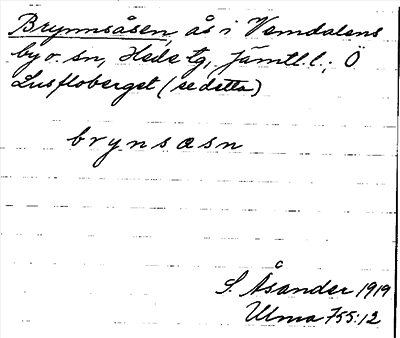 Brynnsåsen, ås i Vemdalens
by o. sn, Hede tg, Jämtl. l.; Ö
Lusfloberget (se detta)
brynsasn
S. Åsander 1919
Ulma 755:12